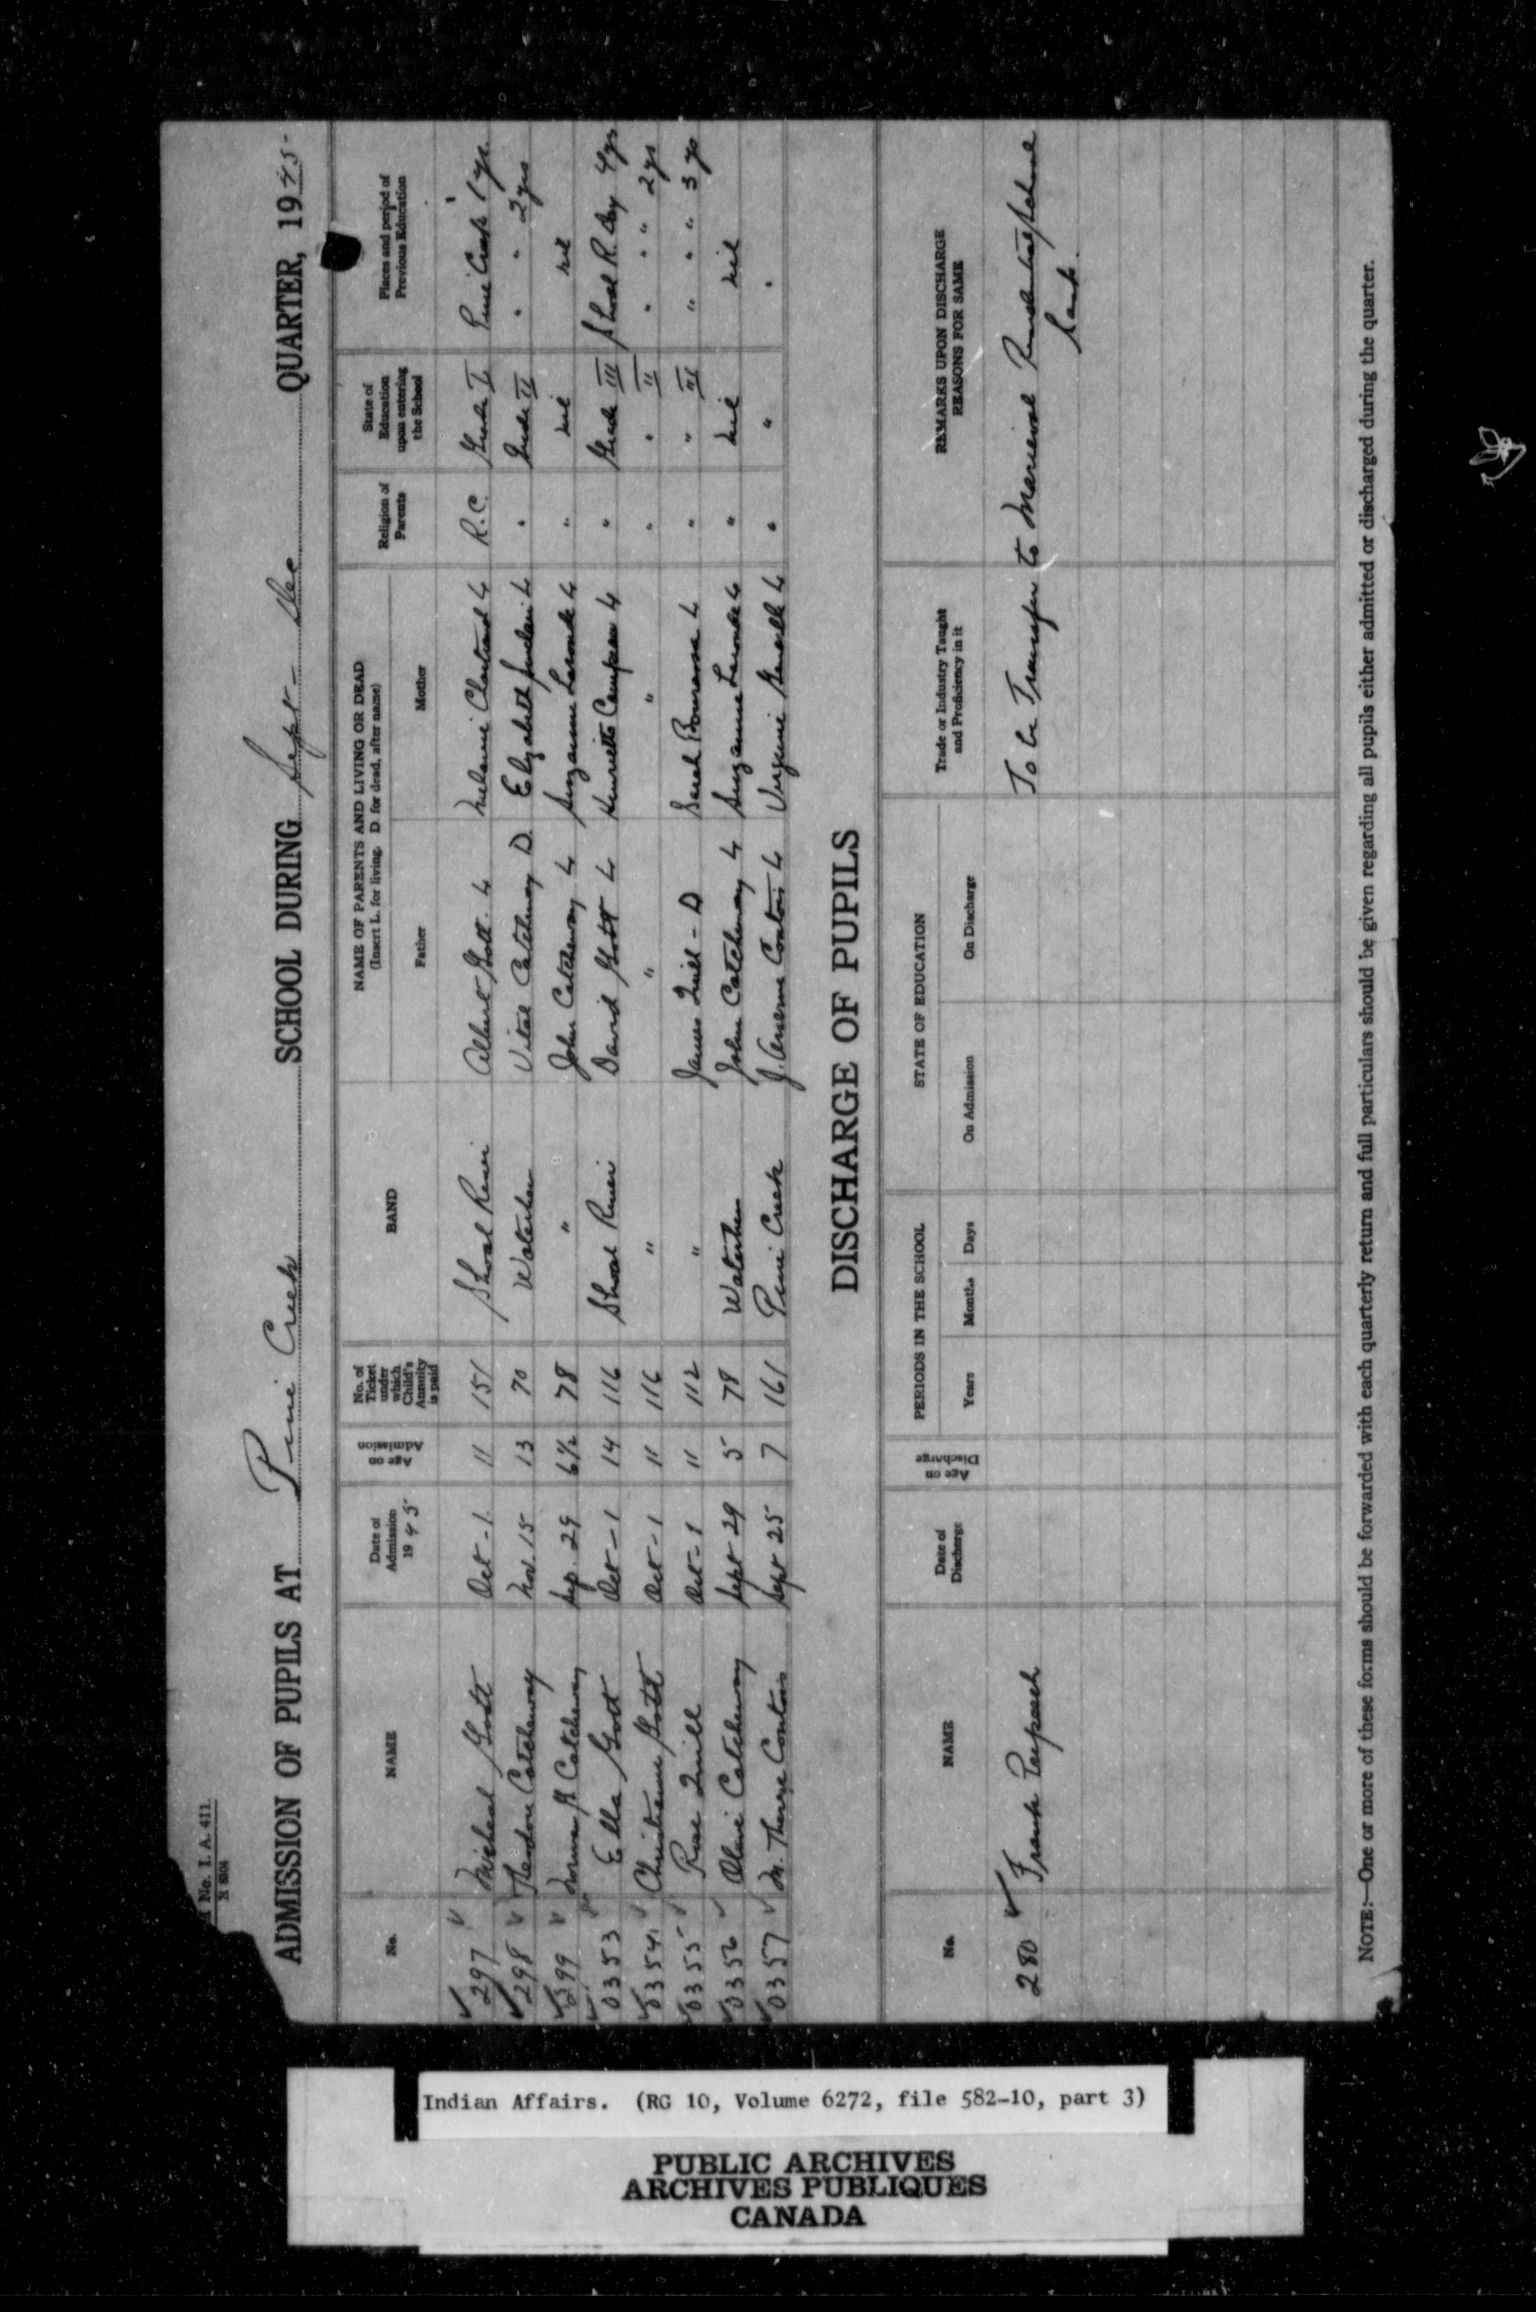 No. I. A. 411.
R 6804
ADMISSION OF PUPILS AT Pine Creek SCHOOL DURING Sept - Dec QUARTER, 1945
No. NAME Date of Admission 1945 Age on Admission No. of Ticket under which Child's Annuity is paid BAND NAME OF PARENTS AND LIVING OR DEAD (Insert L. for living. D. for dead, after name) Father Mother Religion of Parents State of Education upon entering the School Places and period of Previous Education
297 Micheal Gott Oct - 1. 11 151 Shoal River Albert Gott. L Melanie Chartrand L R.C. Grade I Pine Creek 1 yr.
298 Theodore Catcheway Nov. 15 13 70 Waterhen Vital Catcheway D Elizabeth L " Grade II " " 2 yrs
299 Norman J. Catcheway Sep. 29 6½ 78 " John Catcheway L Suzanne Lacombe L " nil nil
0353 Ella Gott Oct - 1 14 116 Shoal River David Gott L Henriette Campeau L " Grade III Shoal R. Day 4 yrs
0354 Christianne Gott Oct - 1 11 116 " " " " " II " " " 2 yrs
0355 Rose Quill Oct - 1 11 112 " James Quill - D Sarah L " " III " " " 3 yrs
0356 Olive Catcheway Sept 29 5 78 Waterhen John Catcheway L Suzanne Lacombe L " nil nil
0357 M. Therese Contois Sept 25 7 161 Pine Creek J. Anselme Contois L Virginie L " " "
DISCHARGE OF PUPILS
No. NAME Date of Discharge Age on Discharge PERIODS IN THE SCHOOL Years Months Days STATE OF EDUCATION On Admission On Discharge Trade or Industry Taught and Proficiency in it REMARKS UPON DISCHARGE REASONS FOR SAME
280 Frank To be Transfer to Marieval Residential School
Sask.
NOTE:—One or more of these forms should be forwarded with each quarterly return and full particulars should be given regarding all pupils either admitted or discharged during the quarter.
Indian Affairs. (RG 10, Volume 6272, file 582-10, part 3)
PUBLIC ARCHIVES
ARCHIVES PUBLIQUES
CANADA